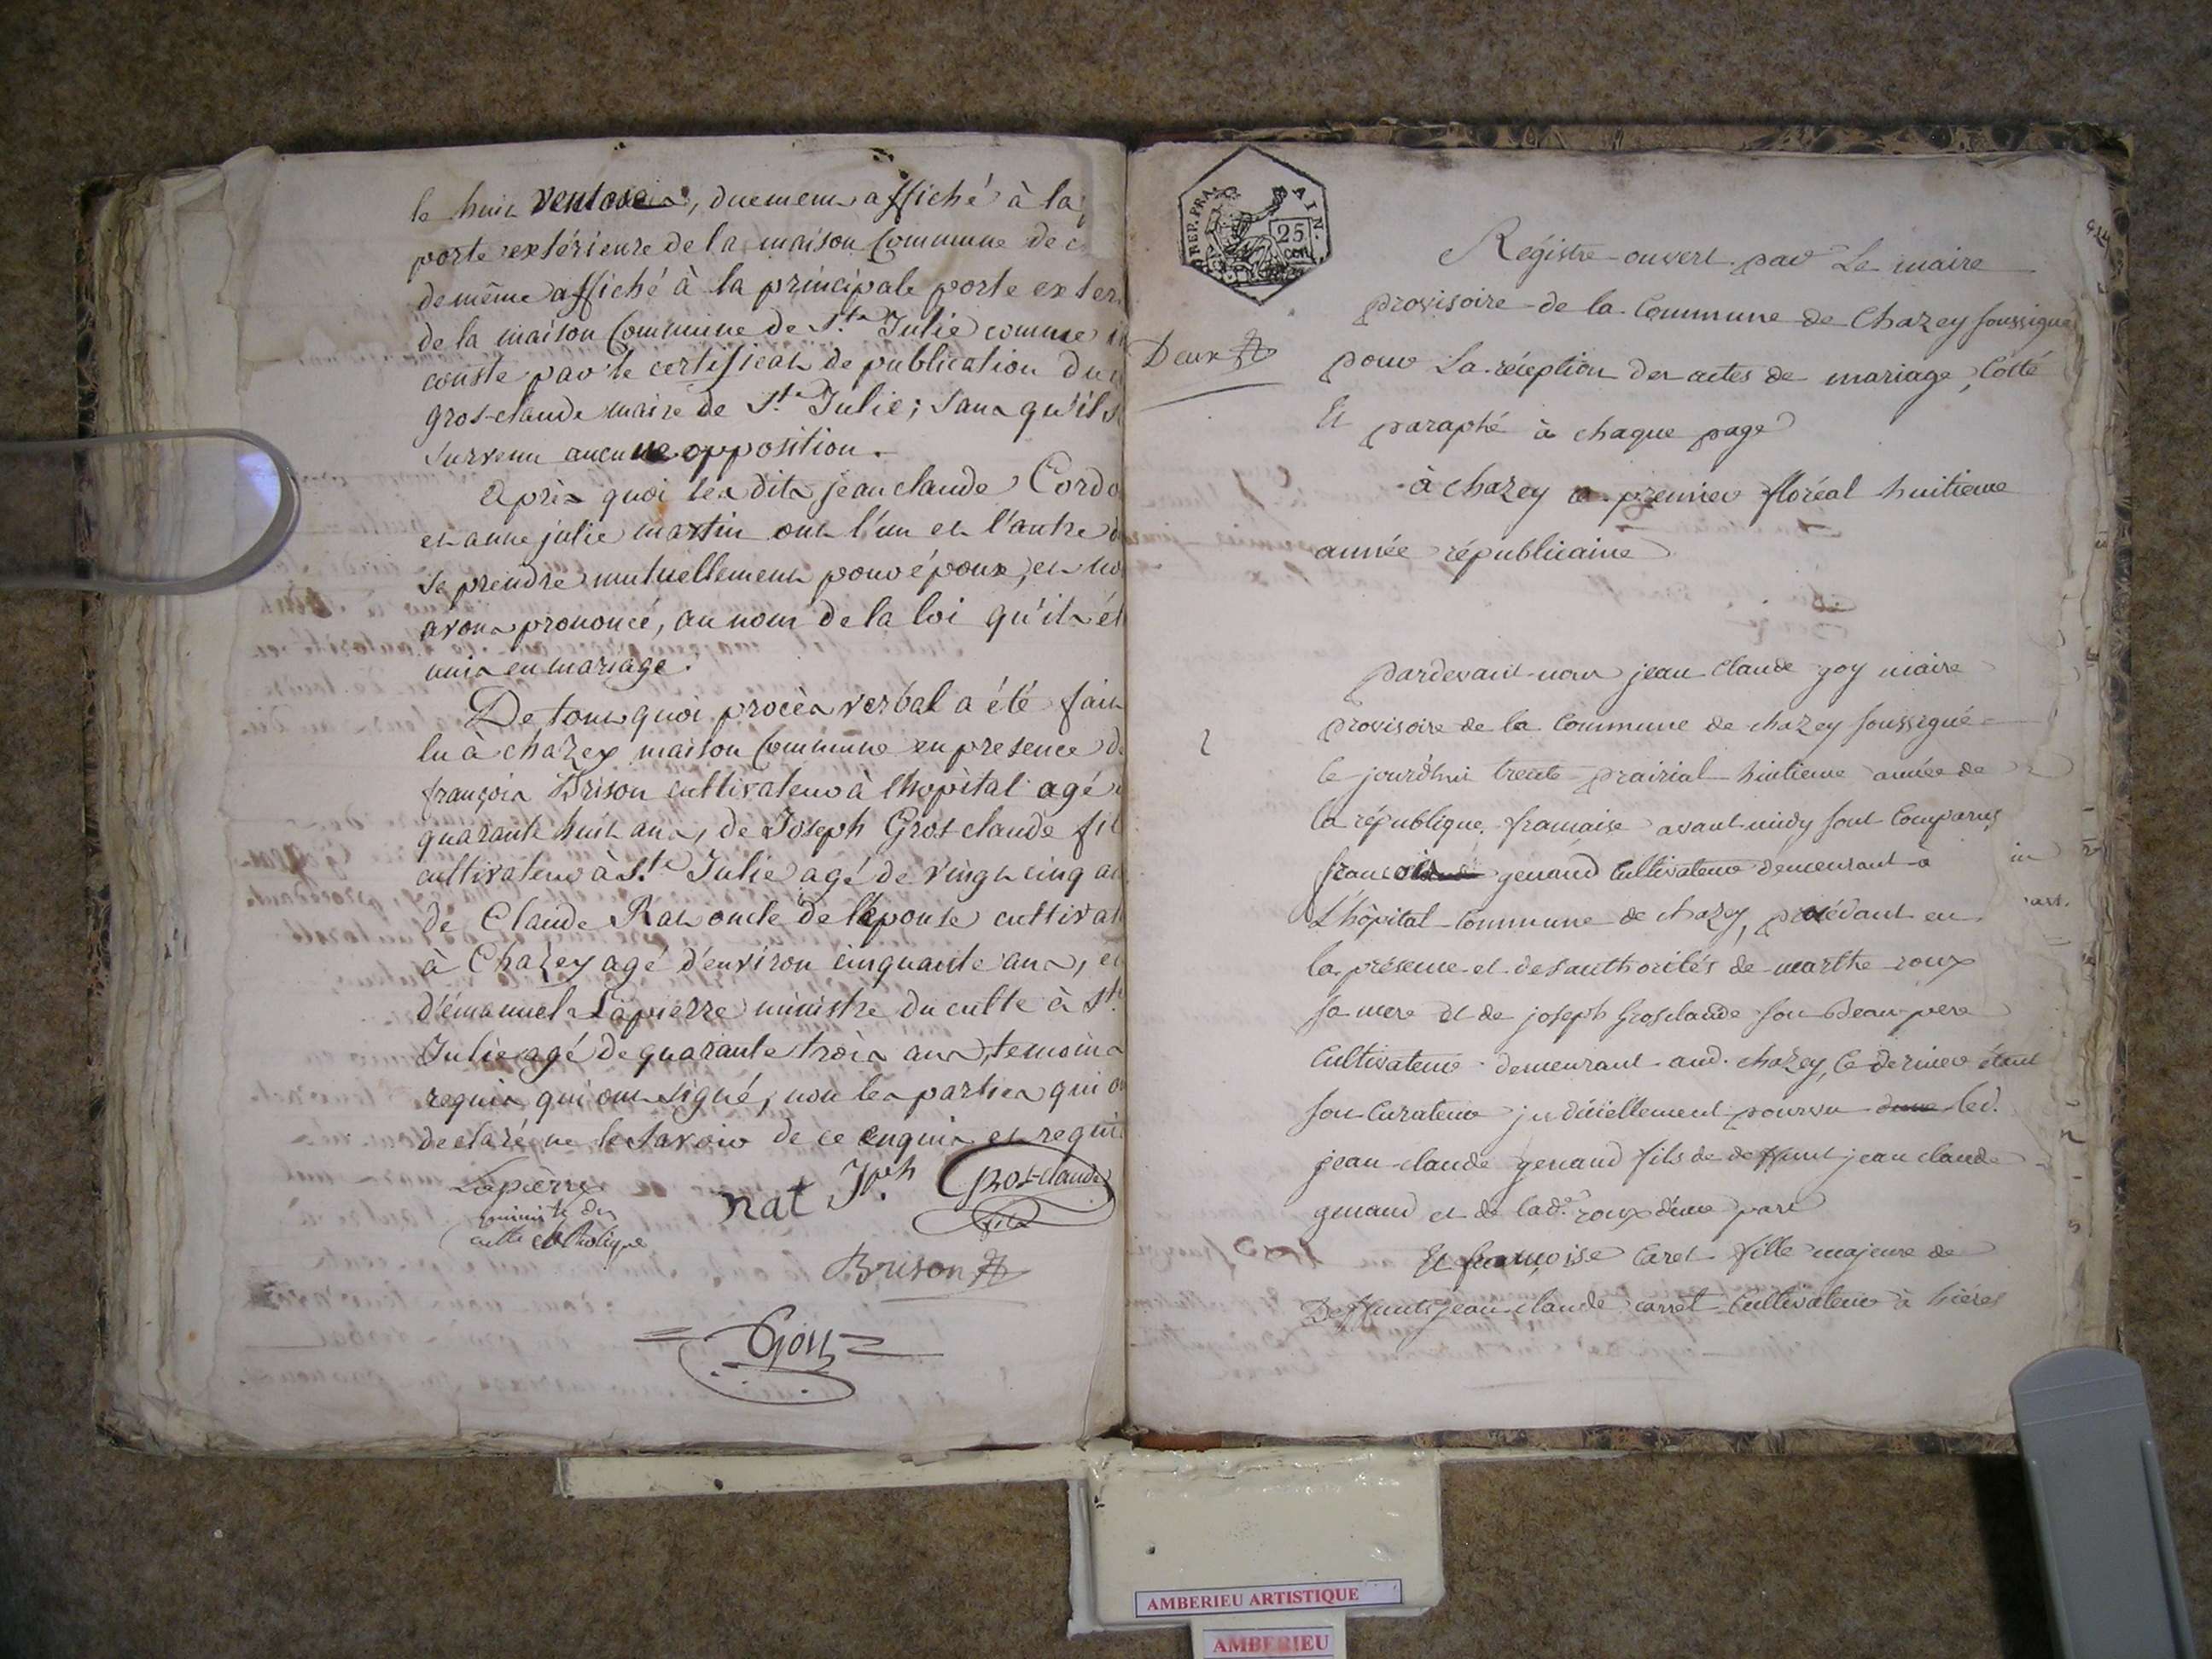 le huit ventose, duement affiché à la
porte extérieure de la maison Commune de c
de même affiché à la principale porte exter
de la maison Commune de Ste Julie comme il
conste par le certificat de publication du
Gros-claude maire de Ste Julie; sans qu'il s
survenu aucune opposition.
Après quoi les dits jean claude Cordo
et anne julie martin ont l'un et l'autre
se prendre mutuellement pour époux, et no
avons prononcé, au nom de la loi qu'ils ét
unis en mariage.
De tout quoi procès verbal a été fait
lu à chazey maison Commune en presence d
françois Brison cultivateur à lhopital agé
quarante huit ans, de Joseph Gros-claude fil
cultivateur à Ste Julie agé de vingt cinq an
de Claude Rat oncle de lépouse cultivat
à Chazey agé d'environ cinquante ans, et
d'émanuel Lapierre ministre du culte à Ste
Julie agé de quarante trois ans, temoins
requis qui ont signé, non les parties qui o
declaré ne le savoir de ce enquis et requis
Lapierre
ministre du
culte catholique
nat Jph Gros-claude
fils
Brison
Goy
REP. FRA. AIN.
25
cen
Deux
Régistre ouvert par Le maire
provisoire de la Commune de Chazey soussigné
pour La réception des actes de mariage, Cotté
Et paraphé à chaque page
à chazey ce premier floréal huitieme
année républicaine
pardevant nous jean Claude goy maire
2
provisoire de la Commune de chazey soussigné
le jourd'hui trente prairial huitieme année de
la république francaise avant midy sont Comparus
francois genaud Cultivateur demeurant à
L'hôpital Commune de chazey, procédant en
la présence et des authorités de marthe roux
sa mere et de joseph Grosclaude son Beau-pere
Cultivateur demeurant aud. chazey, ce dernier étant
son Curateur judiciellement pourvu led.
jean claude genaud fils de deffunt jean claude
genaud et de lade. roux d'une part
Et francoise Caret fille majeure de
Deffunts jean claude carret Cultivateur à hières
AMBERIEU ARTISTIQUE
AMBERIEU